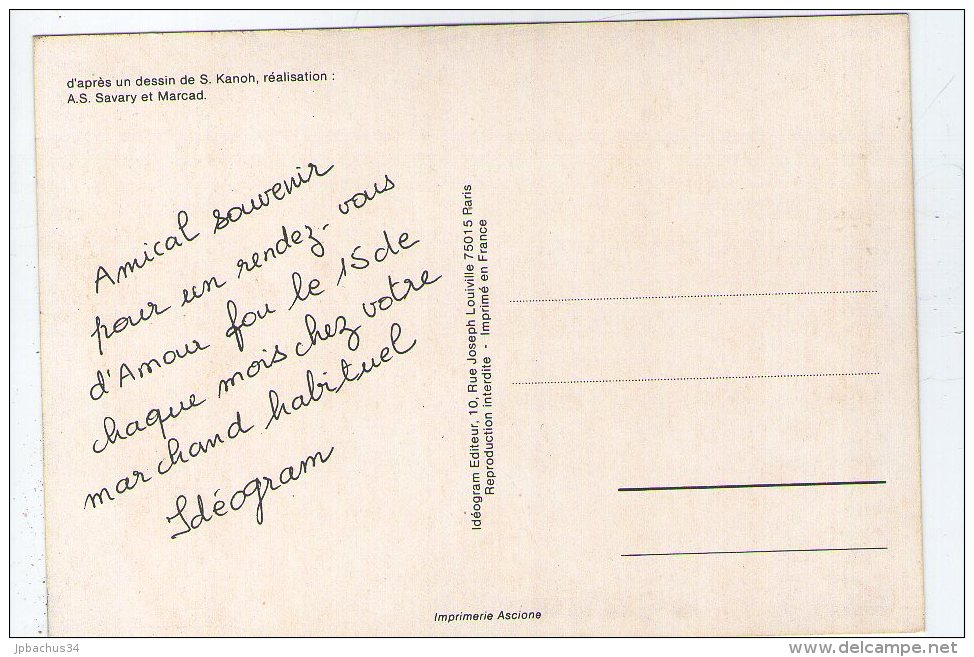 d'après un dessin de S. Kanoh, réalisation :
A.S. Savary et Marcad.
Amical souvenir
pour un rendez-vous
d'Amour fou le 15 de
chaque mois chez votre
marchand habituel
Idéogram
Idéogram Editeur, 10, Rue Joseph Louiville 75015 Raris
Reproduction interdite - Imprimé en France
Imprimerie Ascione
jpbachus34
delcampe.net